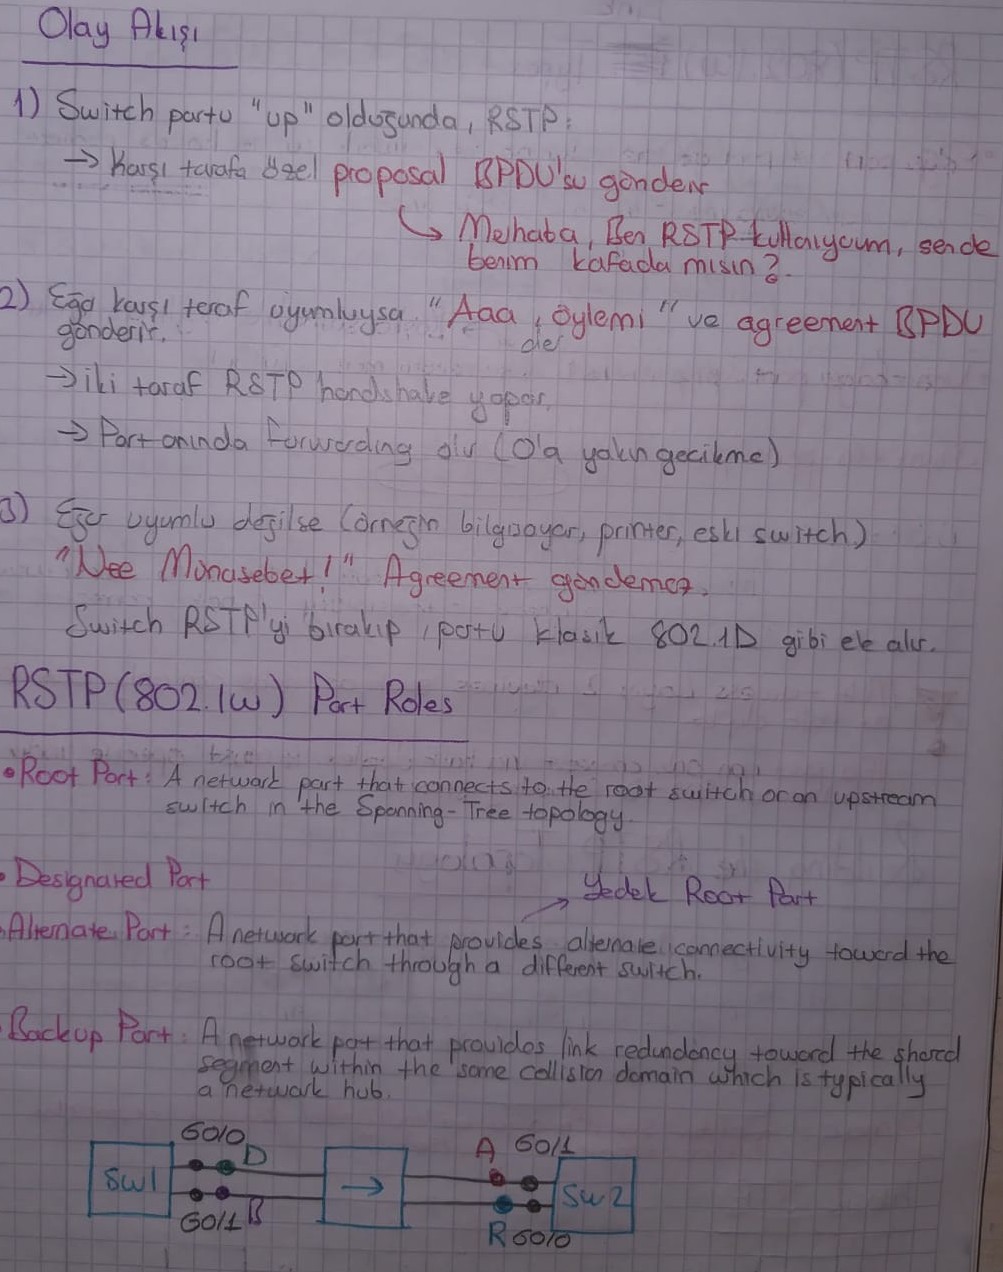 Olay Akışı
1) Switch portu "up" olduğunda, RSTP:
→ Karşı tarafa özel proposal BPDU'su gönderir
↳ Merhaba, Ben RSTP kullanıyorum, sende
benim kafada mısın?
2) Eğer karşı taraf uyumluysa "Aaa, öylemi" ve agreement BPDU
der
gönderir.
→ iki taraf RSTP handshake yapar.
→ Port anında forwarding olur (0'a yakın gecikme)
3) Eğer uyumlu değilse (örneğin bilgisayar, printer, eski switch)
"Nee Münasebet!" Agreement göndermez.
Switch RSTP'yi bırakıp, portu klasik 802.1D gibi ele alır.
RSTP (802.1w) Port Roles
• Root Port: A network port that connects to the root switch or an upstream
switch in the Spanning-Tree topology.
• Designated Port
→ Yedek Root Port
• Alternate Port: A network port that provides alternate connectivity toward the
root switch through a different switch.
• Backup Port: A network port that provides link redundancy toward the shared
segment within the same collision domain which is typically
a network hub.
G0/0 D A G0/1
SW1 → SW2
G0/1 B R G0/0